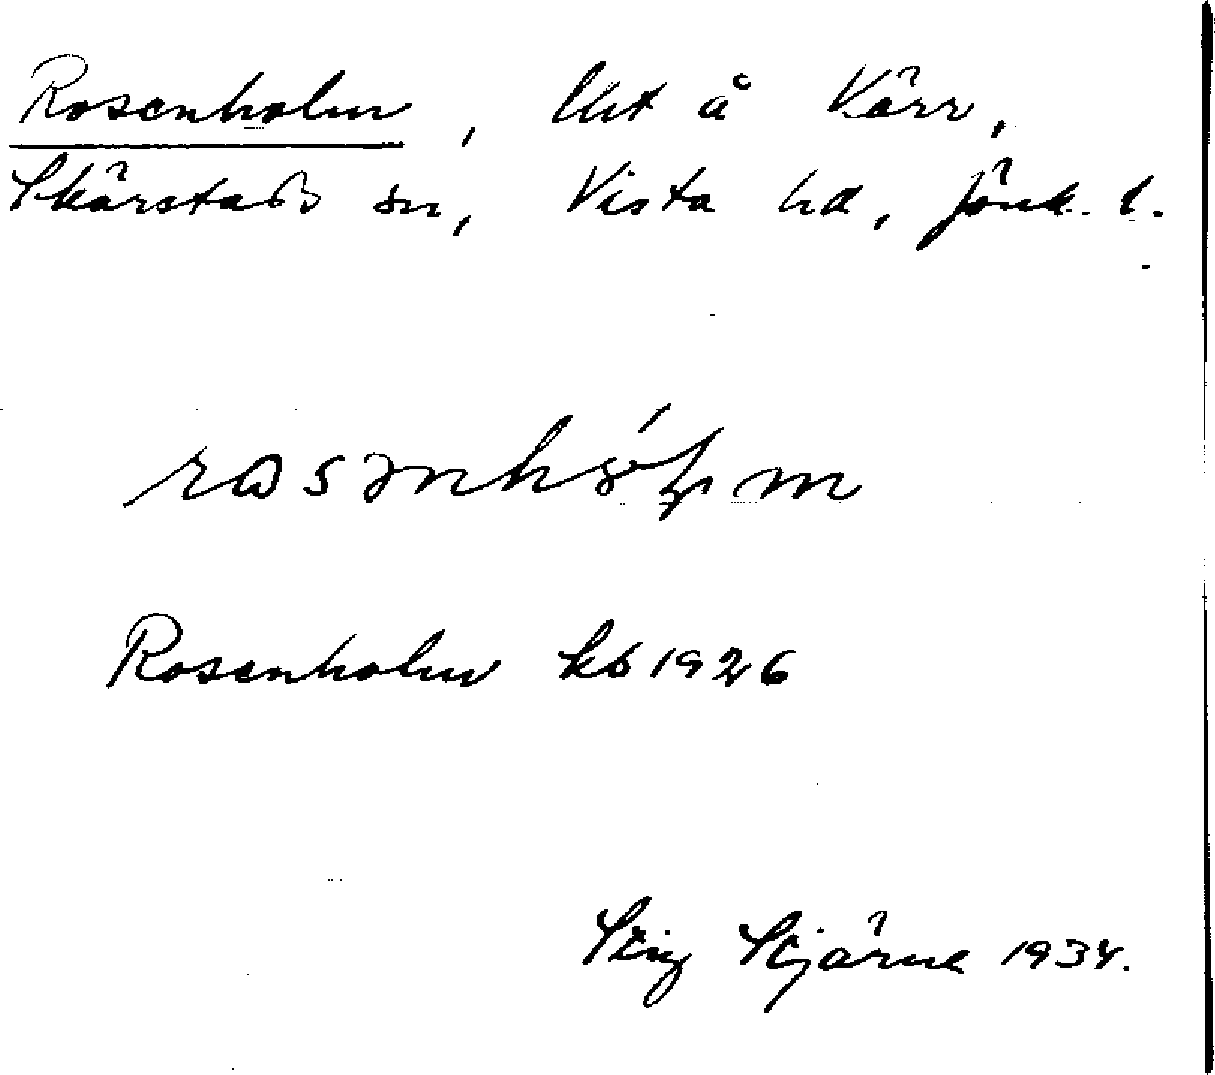 Rosenholm, lht å Kärr,
Skärstads sn, Vista hd, Jönk. l.
Rosenholm kb 1926
Stig Stjärne 1934.